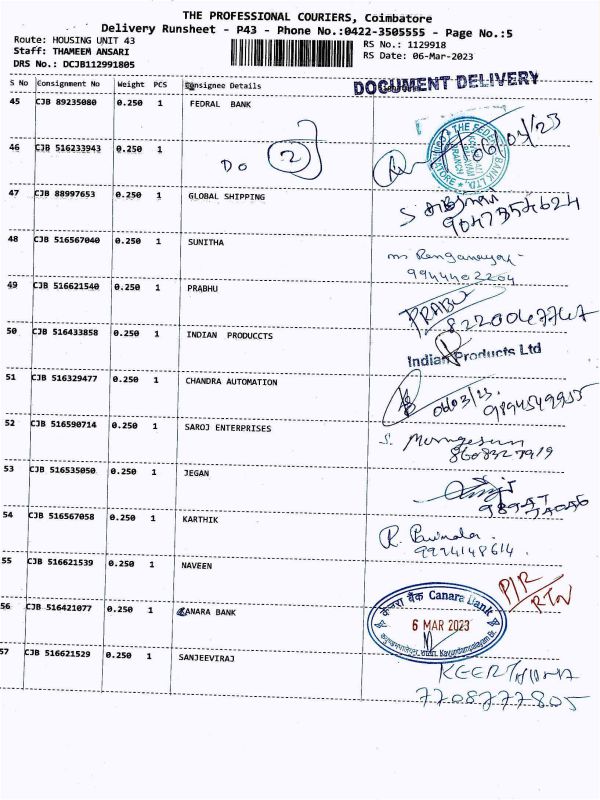 THE PROFESSIONAL COURIERS, Coimbatore
Delivery Runsheet - P43 - Phone No.:0422-3505555 - Page No.:5
Route: HOUSING UNIT 43
RS No.: 1129918
Staff: THAMEEM ANSARI
RS Date: 06-Mar-2023
DRS No.: DCJB112991805
S No Consignment No Weight PCS Consignee Details
DOCUMENT DELIVERY
45 CJB 89235080 0.250 1 FEDRAL BANK
06/03/23
46 CJB 516233943 0.250 1 Do 2
47 CJB 88997653 0.250 1 GLOBAL SHIPPING
9047354624
48 CJB 516567040 0.250 1 SUNITHA
9944402204
49 CJB 516621540 0.250 1 PRABHU
PRABU
8220047747
50 CJB 516433858 0.250 1 INDIAN PRODUCCTS
Indian Products Ltd
51 CJB 516329477 0.250 1 CHANDRA AUTOMATION
52 CJB 516590714 0.250 1 SAROJ ENTERPRISES
8608327919
53 CJB 516535050 0.250 1 JEGAN
54 CJB 516567058 0.250 1 KARTHIK
9224148614
55 CJB 516621539 0.250 1 NAVEEN
P/R
RTN
56 CJB 516421077 0.250 1 CANARA BANK
केनरा बैंक Canara Bank
6 MAR 2023
57 CJB 516621529 0.250 1 SANJEEVIRAJ
7708777805